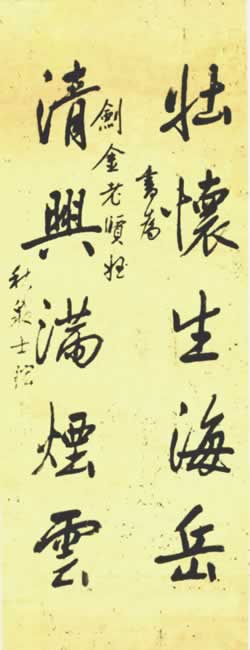 壯懷生海岳
書為
劍金老賢姪
清興滿煙雲
秋泉士